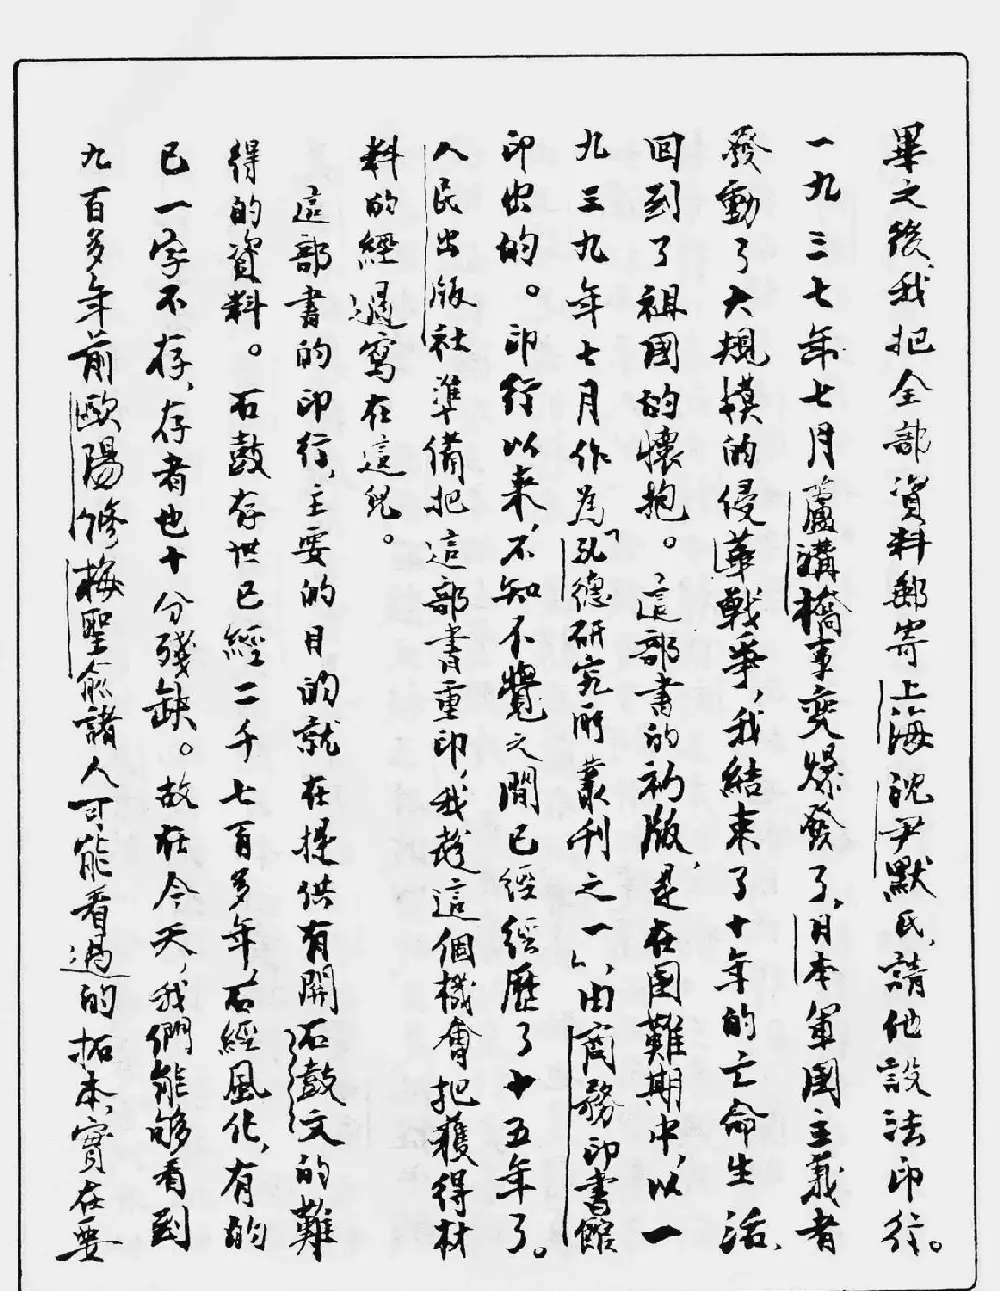 畢之後，我把全部資料郵寄上海沈尹默氏，請他設法印行。
一九三七年七月蘆溝橋事變爆發了，日本軍國主義者
發動了大規模的侵華戰爭，我結束了十年的亡命生活，
回到了祖國的懷抱。這部書的初版，是在國難期中，以一
九三九年七月作為「孔德研究所叢刊之一」，由商務印書館
印出的。印行以來，不知不覺之間已經經歷了十五年了。
人民出版社準備把這部書重印，我趁這個機會把獲得材
料的經過寫在這兒。
這部書的印行，主要的目的就在提供有關石鼓文的難
得的資料。石鼓存世已經二千七百多年，石經風化，有的
已一字不存，存者也十分殘缺。故在今天，我們能夠看到
九百多年前歐陽修梅聖俞諸人可能看過的拓本，實在要